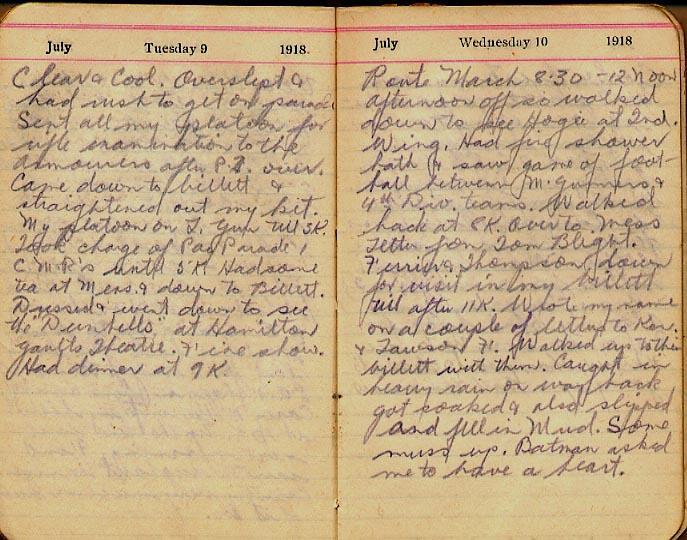 July Tuesday 9 1918.
Clear & Cool. Overslept &
had rush to get on parade
Sent all my platoon for
rifle examination to the
armourers after P.T. over.
Came down to billett &
straightened out my kit.
My platoon on L. Gun till 3K.
Took charge of Pay Parade
C.M.R's until 5K Had some
tea at Mess. & down to Billett.
Dressed & went down to see
the "Dumbells" at Hamilton
Theatre. Fine show.
Had dinner at 9K.
July Wednesday 10 1918
Route March 8.30 - 12 Noon
afternoon off so walked
down to see Hogie at 2nd.
Wing. Had fine shower
bath & saw game of foot-
ball between M. Gunners &
4th Div. teams. Walked
back at 8K. Over to Mess
Letter from Tom Blight.
& Thompson down
for visit in my billett
till after 11K. Wrote my name
on a couple of letters to Ken.
& Lawson F. Walked up to their
billett with them. Caught in
heavy rain on way back
got soaked & also slipped
and fell in Mud. Some
muss up. Batman asked
me to have a heart.